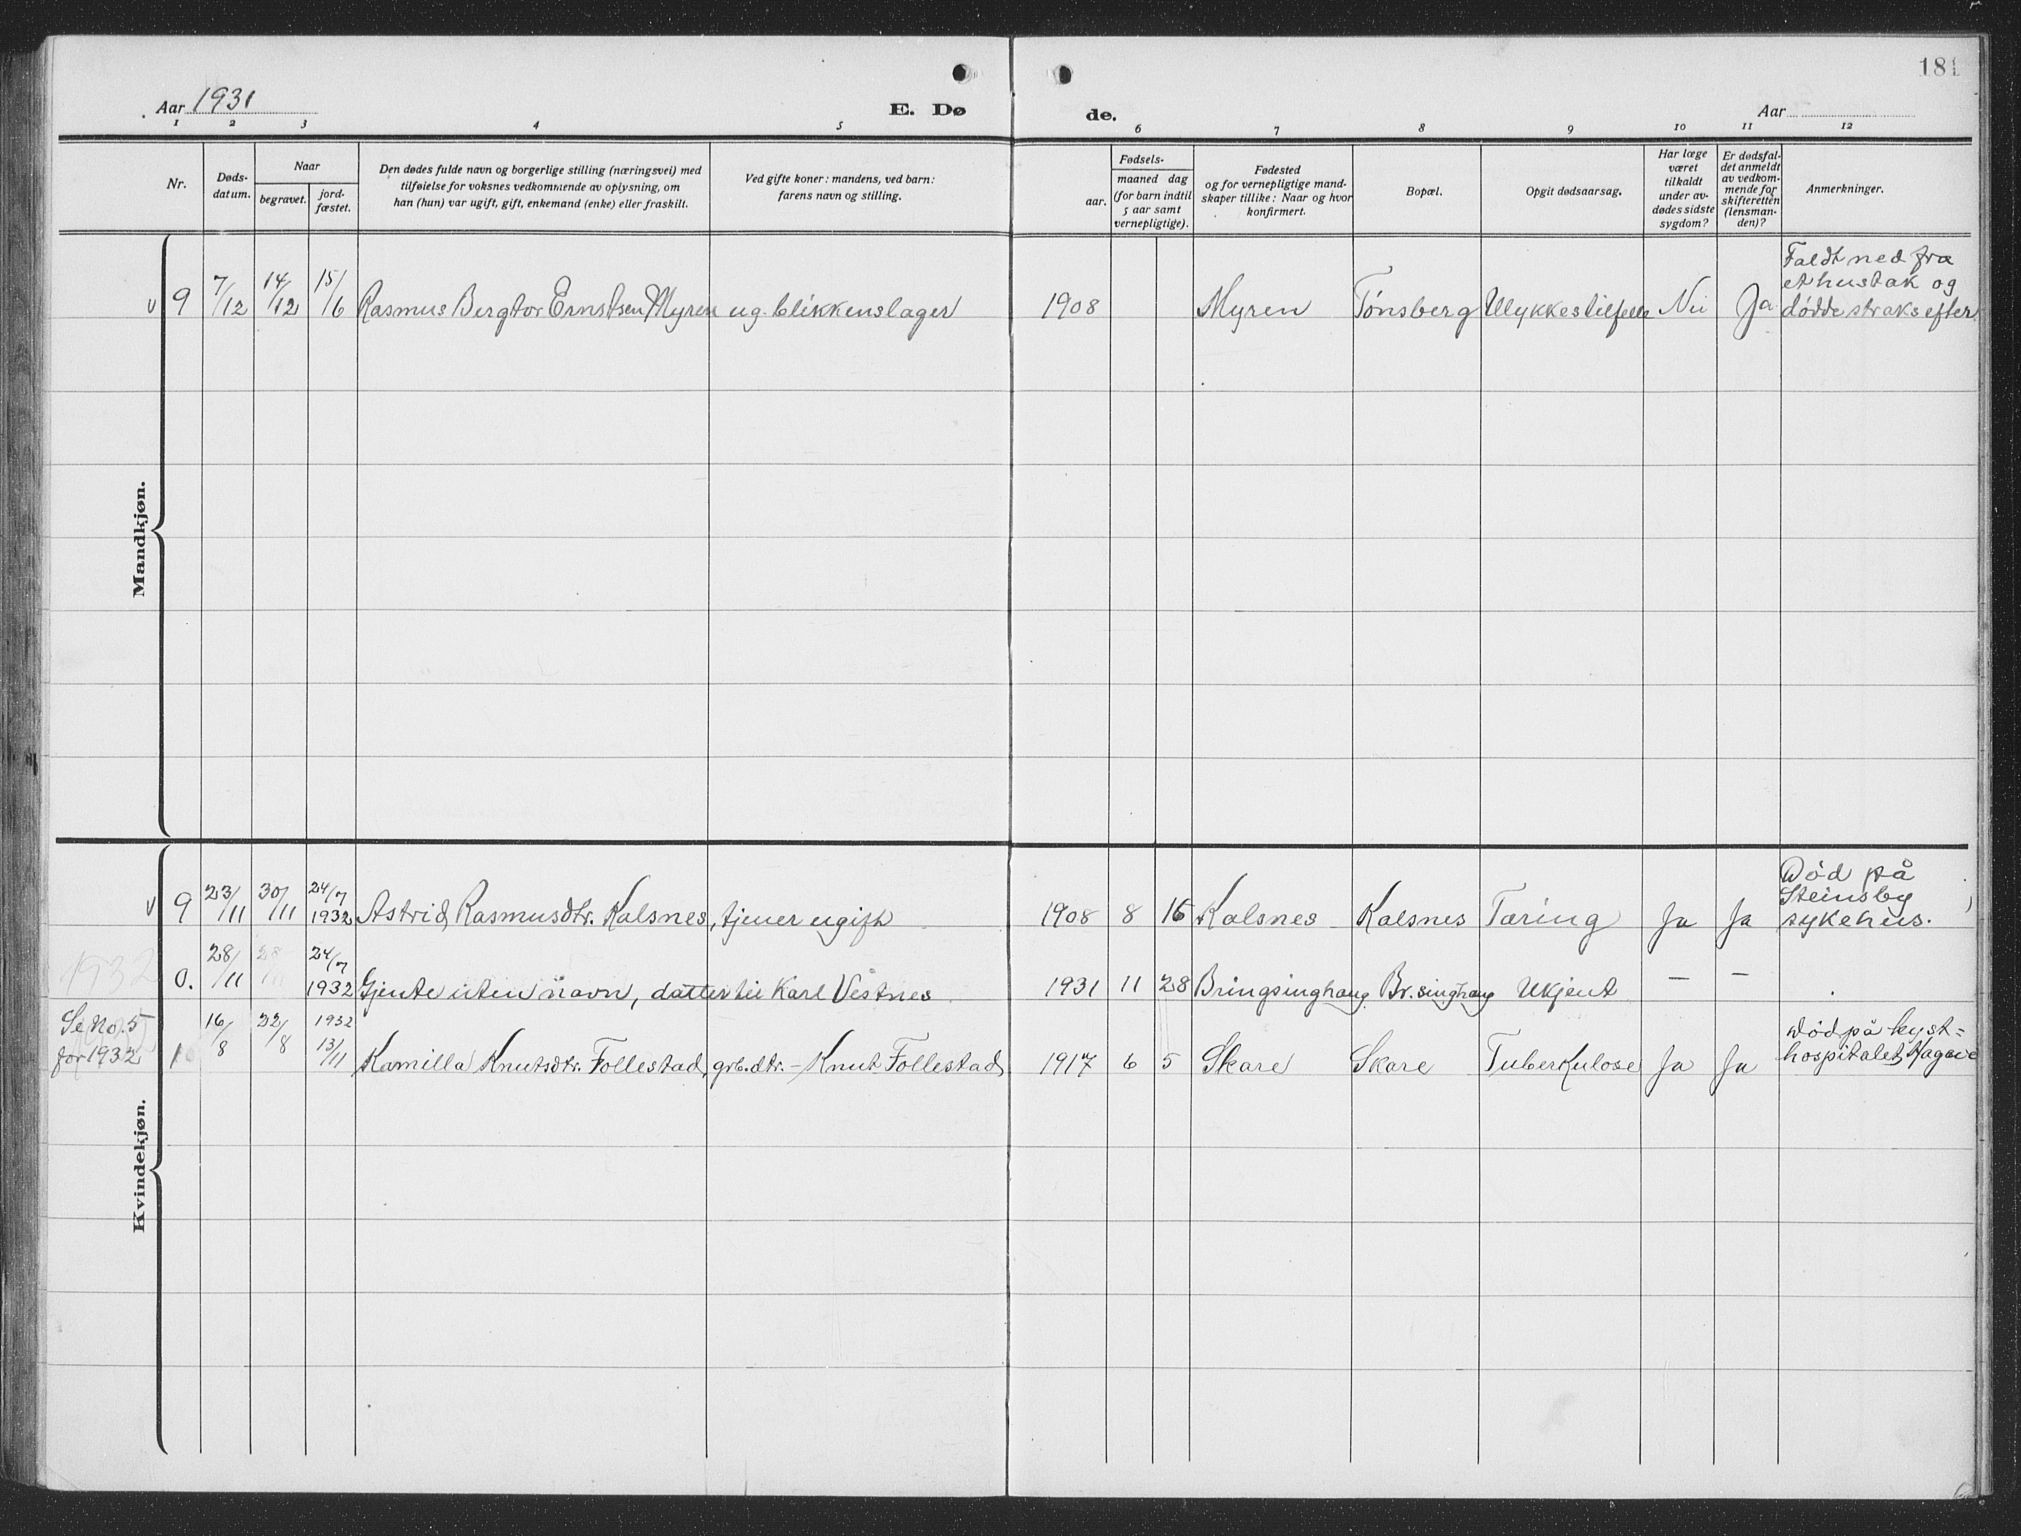 181
Aar 1931
E. Dø
de.
Aar
1 2 3 4 5 6 7 8 9 10 11 12
Nr.
Døds-
datum.
Naar
begravet.
jord-
fæstet.
Den dødes fulde navn og borgerlige stilling (næringsvei) med
tilføielse for voksnes vedkommende av oplysning, om
han (hun) var ugift, gift, enkemand (enke) eller fraskilt.
Ved gifte koner: mandens, ved barn:
farens navn og stilling.
aar.
Fødsels-
maaned dag
(for barn indtil
5 aar samt
vernepligtige).
Fødested
og for vernepligtige mand-
skaper tillike: Naar og hvor
konfirmert.
Bopæl.
Opgit dødsaarsag.
Har læge
været
tilkaldt
under av-
dødes sidste
sygdom?
Er dødsfal-
det anmeldt
av vedkom-
mende for
skifteretten
(lensman-
den)?
Anmerkninger.
Mandkjøn.
v 9 7/12 14/12 15/6 Rasmus Bergtor Ernstsen Myren ug. blikkenslager 1908 Myren Tønsberg Ulykkestilfelle Nei Ja
Faldt ned fra
et hustak og
dødde straks efter
Kvindekjøn.
v 9 23/11 30/11 24/7 1932 Astrid Rasmusdtr. Kalsnes, tjener ugift 1908 8 16 Kalsnes Kalsnes Tæring Ja Ja
Død på
Steinsby
sykehus.
1932
0. 28/11 28/11 24/7 1932 Gjente uten navn, datter til Karl Vestnes 1931 11 28 Bringsinghaug Br.singhaug Ukjent — —
Se No. 5
for 1932
16/8 22/8 1932 13/11 Kamilla Knutsdtr. Follestad, grb.dtr. - Knut Follestad 1917 6 5 Skare Skare Tuberkulose Ja Ja
Død på kyst=
hospitalet, Hagevik